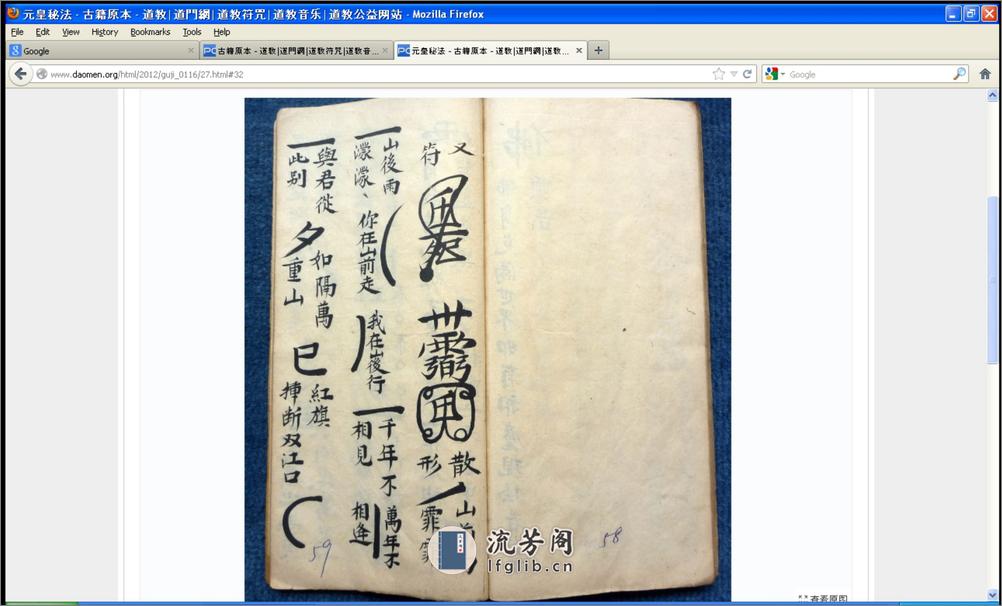 元皇秘法 - 古籍原本 - 道教|道門網|道教符咒|道教音乐|道教公益网站 - Mozilla Firefox
File Edit View History Bookmarks Tools Help
Google
古籍原本 - 道教|道門網|道教符咒|道教音...
元皇秘法 - 古籍原本 - 道教|道門網|道教...
www.daomen.org/html/2012/guji_0116/27.html#32
Google
又
符
散
形
山
霏
山後雨
濛濛、你在山前走
我在山後行
千年不
相見
萬年不
相逢
與君從
此别
如隔萬
重山
紅旗
挿断双江口
58
59
流芳阁
lfglib.cn
查看原图